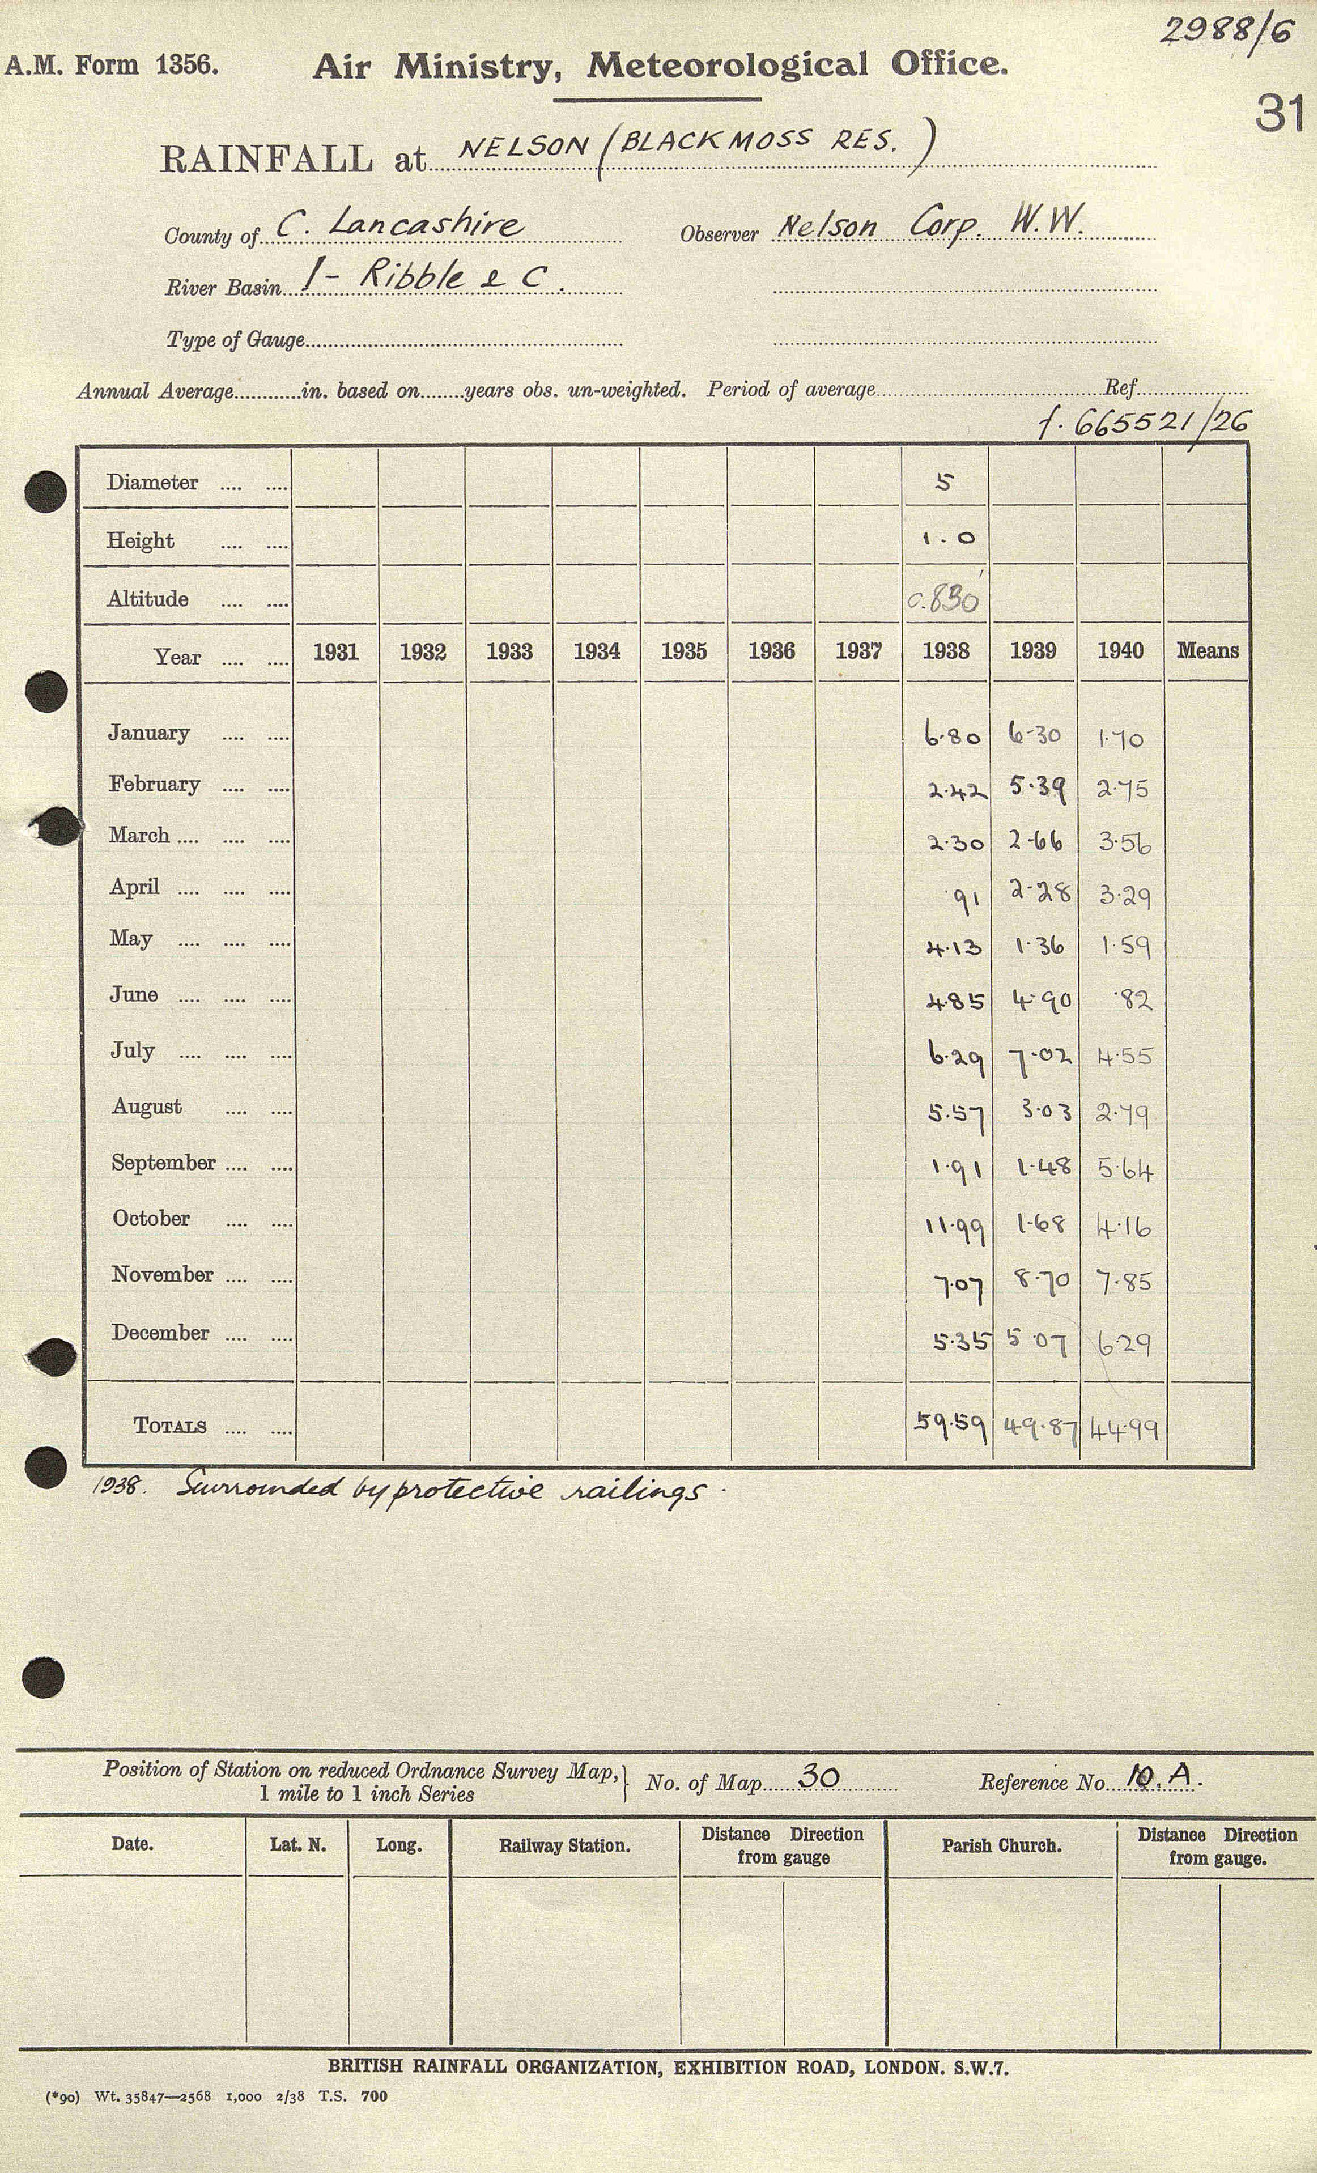 2988/6
A.M. Form 1356. Air Ministry, Meteorological Office.
31
RAINFALL at NELSON (BLACKMOSS RES.)
County of C. Lancashire Observer Nelson Corp. W.W.
River Basin 1- Ribble & C.
Type of Gauge
Annual Average in. based on years obs. un-weighted. Period of average Ref.
f. 665521/26
Diameter 5
Height 1.0
Altitude c.830'
Year 1931 1932 1933 1934 1935 1936 1937 1938 1939 1940 Means
January 6.80 6.30 1.70
February 2.42 5.39 2.75
March 2.30 2.66 3.56
April .91 2.28 3.29
May 4.13 1.36 1.59
June 4.85 4.90 .82
July 6.29 7.02 4.55
August 5.57 3.03 2.79
September 1.91 1.48 5.64
October 11.99 1.68 4.16
November 7.07 8.70 7.85
December 5.35 5.07 6.29
TOTALS 59.59 49.87 44.99
1938. Surrounded by protective railings.
Position of Station on reduced Ordnance Survey Map, 1 mile to 1 inch Series } No. of Map 30 Reference No. 10.A.
Date. Lat. N. Long. Railway Station. Distance Direction from gauge Parish Church. Distance Direction from gauge.
BRITISH RAINFALL ORGANIZATION, EXHIBITION ROAD, LONDON. S.W.7.
(*90) Wt. 35847—2568 1,000 2/38 T.S. 700